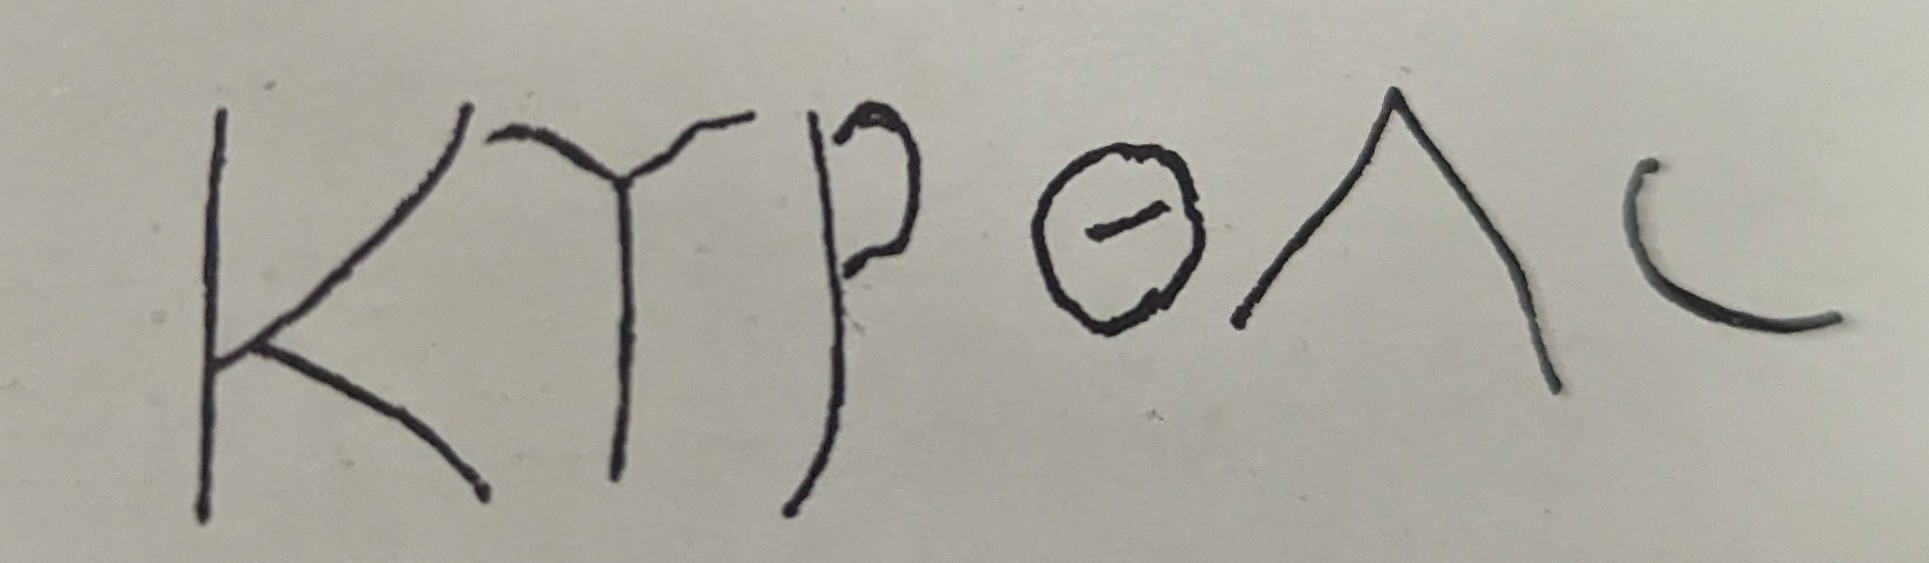 ΚΥΡΘΛϹ